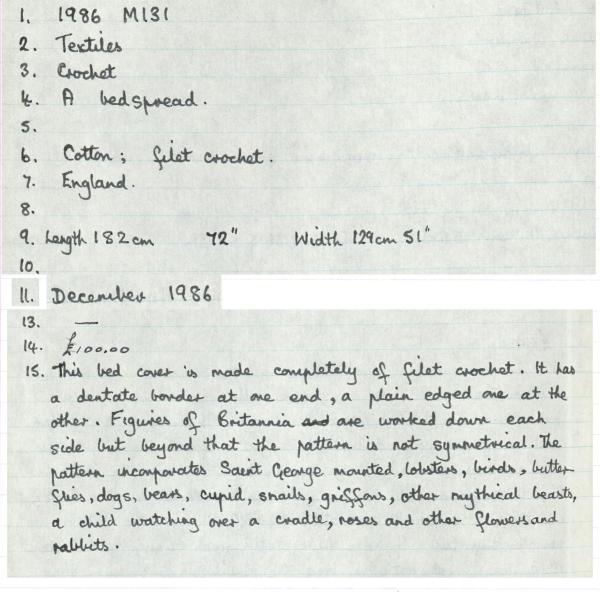 1. 1986 M131
2. Textiles
3. Crochet
4. A bedspread.
5.
6. Cotton; filet crochet.
7. England.
8.
9. Length 182cm 72" Width 129cm 51"
10.
11. December 1986
13. —
14. £100.00
15. This bed cover is made completely of filet crochet. It has
a dentate border at one end, a plain edged one at the
other. Figures of Britannia and are worked down each
side but beyond that the pattern is not symmetrical. The
pattern incorporates Saint George mounted, lobsters, birds, butter-
flies, dogs, bears, cupid, snails, griffons, other mythical beasts,
a child watching over a cradle, roses and other flowers and
rabbits.